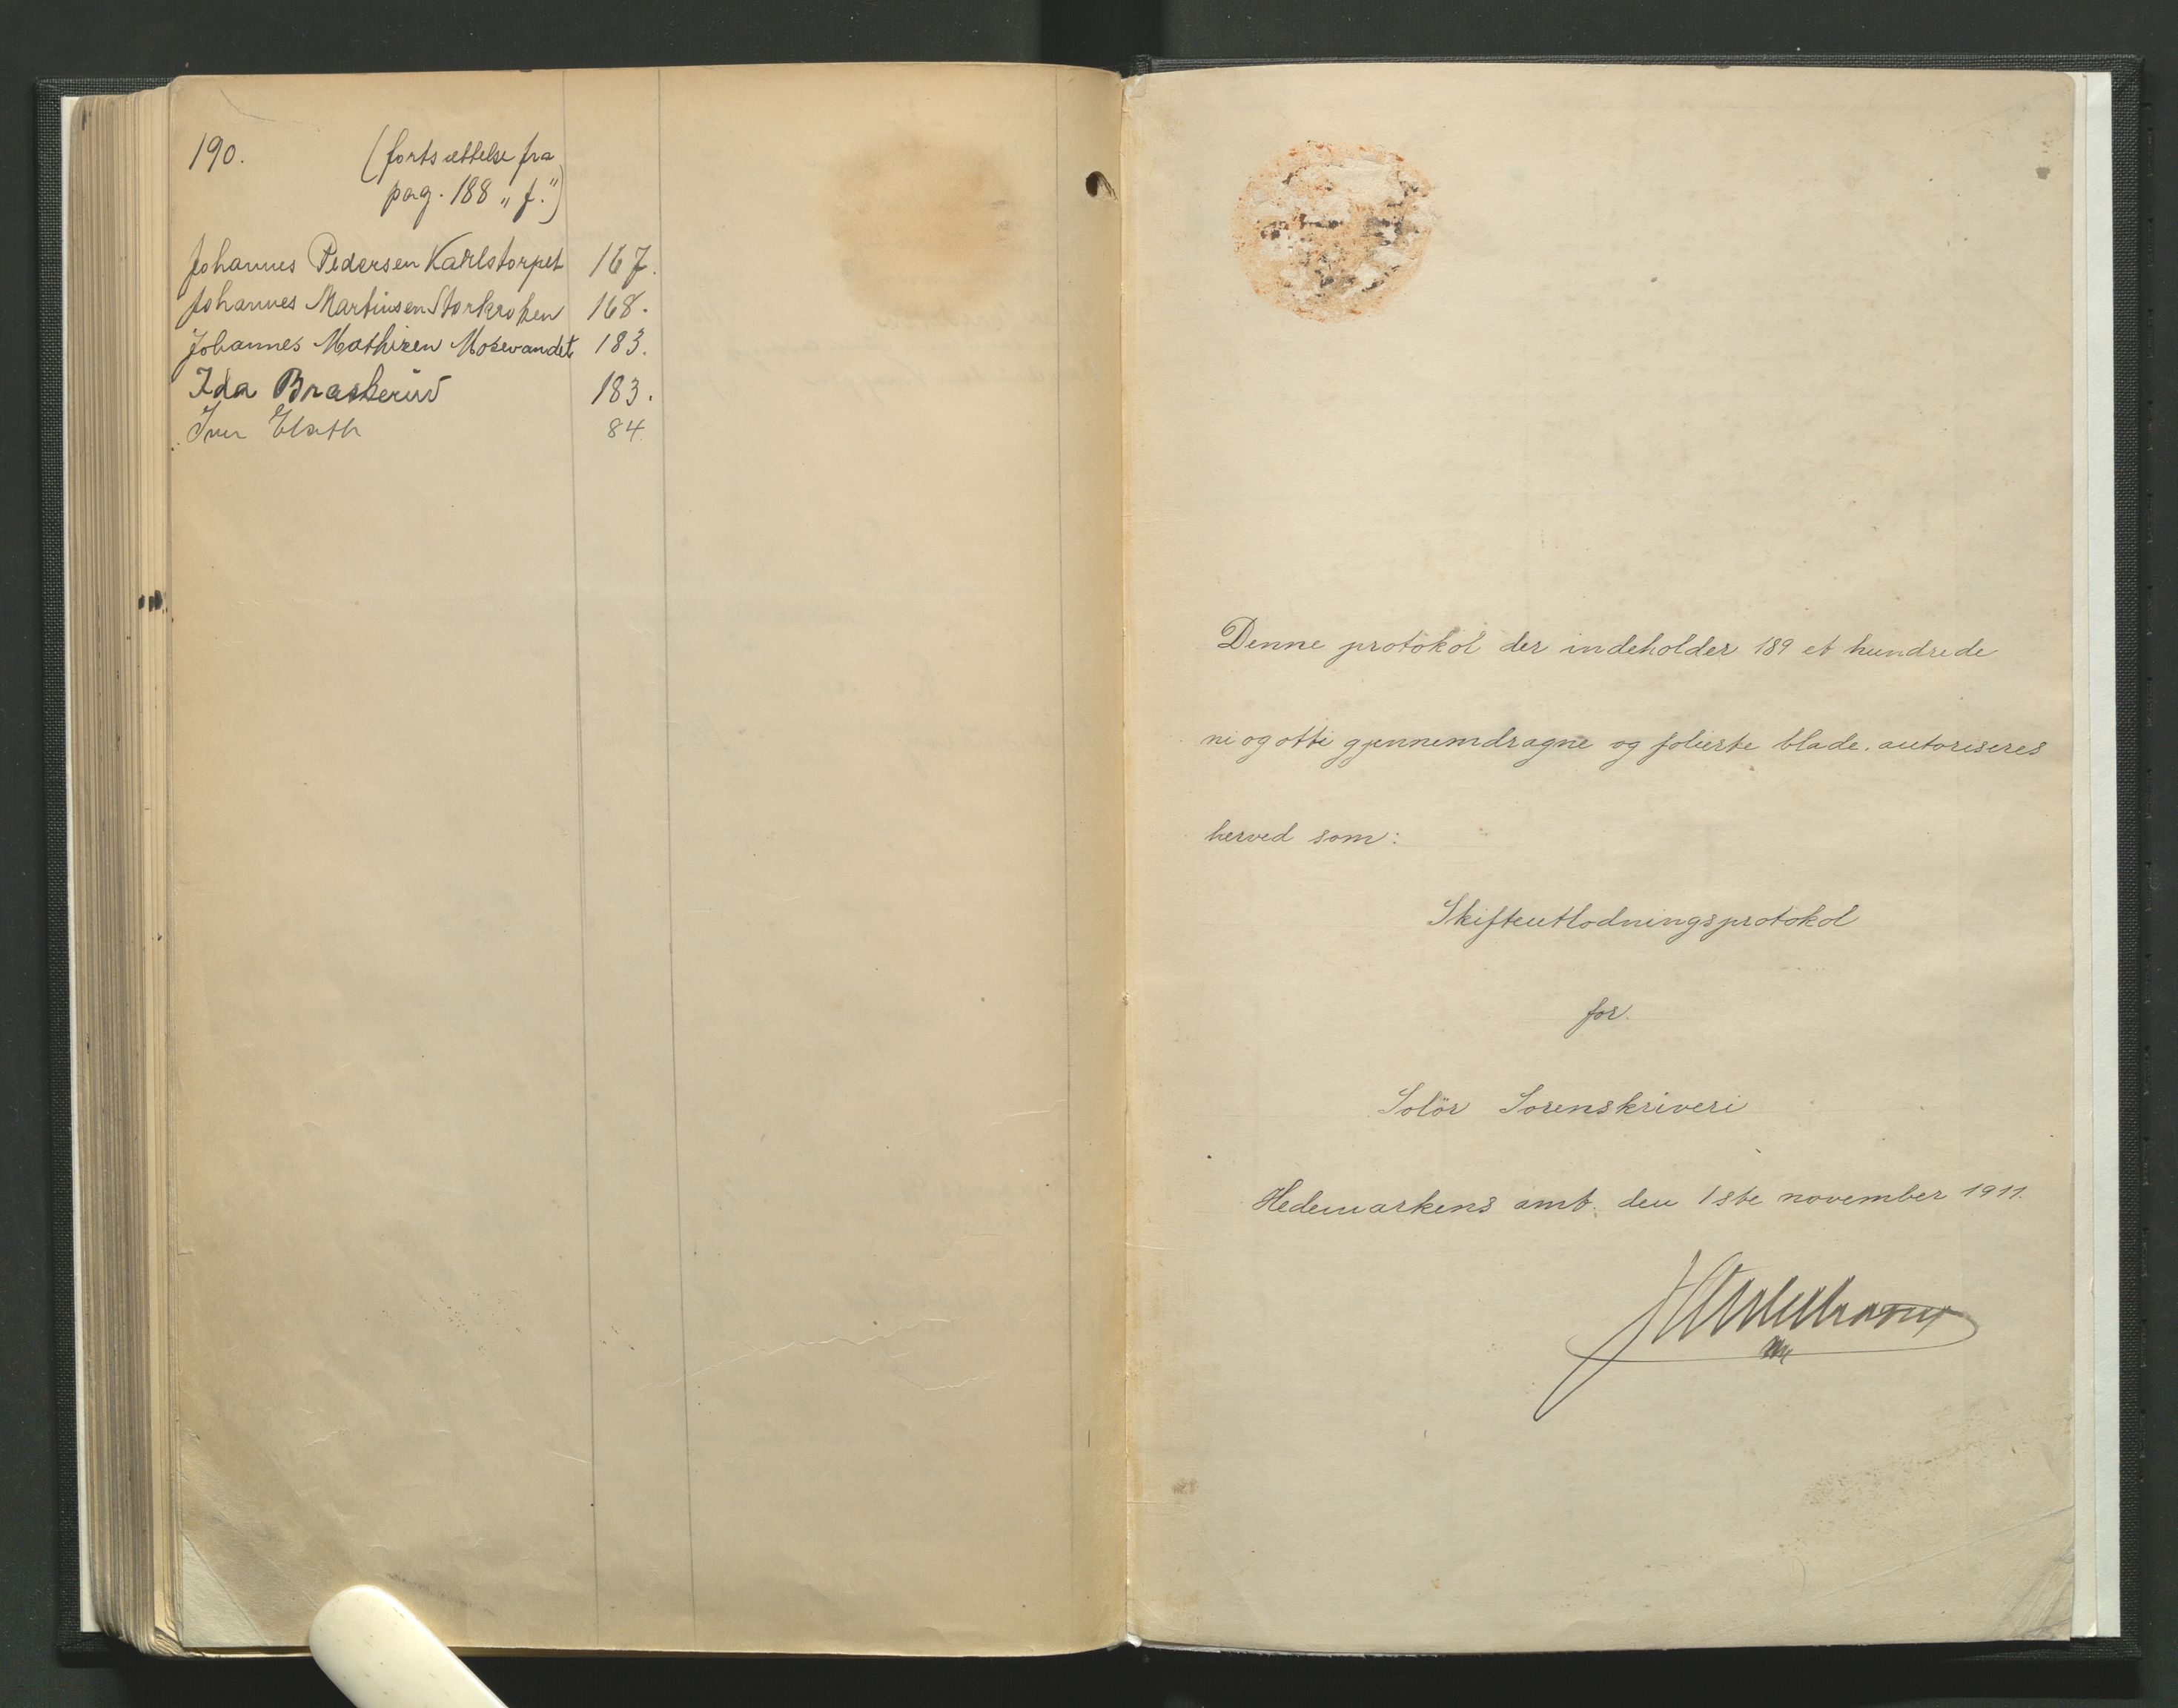 190.
(fortsættelse fra
pag. 188 „f.")
Johannes Pedersen Karlstorpet 167.
Johannes Martinsen Storkroken 168.
Johannes Mathisen Mosevandet 183.
Ida Braskerud 183.
Iver 84
Denne protokol der indeholder 189 et hundrede
ni og otti gjennemdragne og folierte blade. autoriseres
herved som:
Skifteutlodningsprotokol
for.
Solör Sorenskriveri
Hedemarkens amt. den 1ste november 1911.